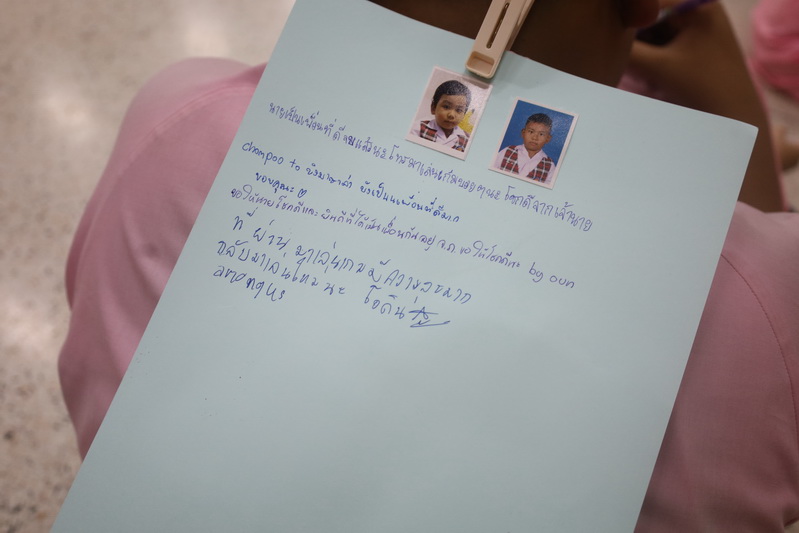 นายเป็นเพื่อนที่ดีมากแล้วนะ โทรมาเล่นเกมบ่อยๆนะ โชคดีจากเจ้านาย
chompoo to ยังมาษาค่า ยังเป็นเพื่อนที่ดีมาก
ขอบคุณนะ
ขอให้นายโชคดีและยินดีที่ได้เป็นเพื่อนกันอยู่ จ.ภ. ขอให้โชคดีนะ by oun
ที่ผ่านมาเล่นเกมมีความสุขมาก
กลับมาเล่นใหม่นะ โชคดีน่ะ
amongus